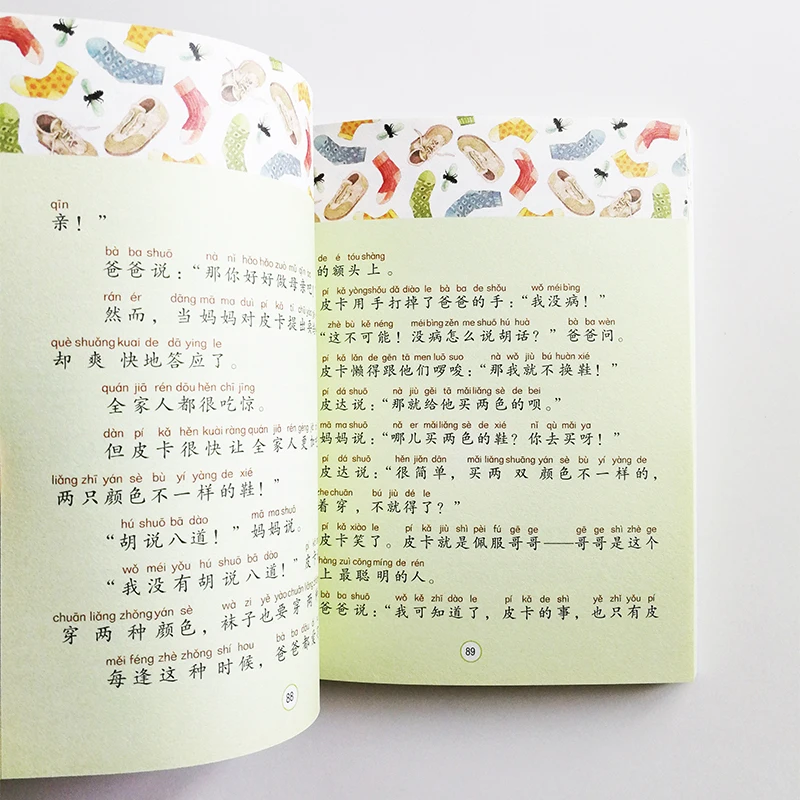 qīn
亲！”
bà ba shuō nà nǐ hǎo hǎo zuò mǔ qīn
爸爸说：“那你好好做母亲吧
rán ér dāng mā ma duì pí kǎ tí
然而，当妈妈对皮卡提出要
què shuǎng kuai de dā ying le
却爽快地答应了。
quán jiā rén dōu hěn chī jīng
全家人都很吃惊。
dàn pí kǎ hěn kuài ràng quán jiā rén gèng
但皮卡很快让全家人更
liǎng zhī yán sè bù yí yàng de xié
两只颜色不一样的鞋！”
hú shuō bā dào mā ma shuō
“胡说八道！”妈妈说。
wǒ méi yǒu hú shuō bā dào
“我没有胡说八道！”皮卡
chuān liǎng zhǒng yán sè wà zi yě yào chuān liǎng
穿两种颜色，袜子也要穿两
měi féng zhè zhǒng shí hou bà ba dōu
每逢这种时候，爸爸都爱
88
de é tóu shàng
的额头上。
pí kǎ yòng shǒu dǎ diào le bà ba de shǒu wǒ méi bìng
皮卡用手打掉了爸爸的手：“我没病！”
zhè bù kě néng méi bìng zěn me shuō hú huà bà ba wèn
“这不可能！没病怎么说胡话？”爸爸问。
pí kǎ lǎn de gēn tā men luō suo nà wǒ jiù bú huàn xié
皮卡懒得跟他们啰唆：“那我就不换鞋！”
pí dá shuō nà jiù gěi tā mǎi liǎng sè de bei
皮达说：“那就给他买两色的呗。”
mā ma shuō nǎ er mǎi liǎng sè de xié nǐ qù mǎi ya
妈妈说：“哪儿买两色的鞋？你去买呀！”
pí dá shuō hěn jiǎn dān mǎi liǎng shuāng yán sè bù yí yàng de
皮达说：“很简单，买两双颜色不一样的，
zhe chuān bú jiù dé le
着穿，不就得了？”
pí kǎ xiào le pí kǎ jiù shì pèi fú gē ge gē ge shì zhè ge
皮卡笑了。皮卡就是佩服哥哥——哥哥是这个
shàng zuì cōng míng de rén
上最聪明的人。
bà ba shuō wǒ kě zhī dào le pí kǎ de shì yě zhǐ yǒu pí
爸爸说：“我可知道了，皮卡的事，也只有皮
89